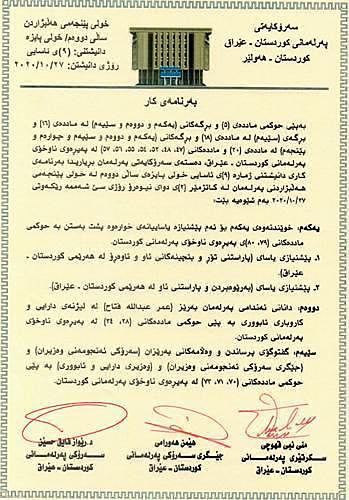 سەرۆکایەتی
پەرلەمانی کوردستان - عێراق
کوردستان - هەولێر
خولی پێنجەمی هەڵبژاردن
ساڵی دووەم/ خولی پایزە
دانیشتنی: (٩)ی ئاسایی
رۆژی دانیشتن: ٢٠٢٠/١٠/٢٧
بەرنامەی کار
بەپێی حوکمی ماددەی (٥) و بڕگەکانی (یەکەم و دووەم و سێیەم)ـ لە ماددەی (١٦) و
بڕگەی (سێیەم)ـ لە ماددەی (١٨) و بڕگەکانی (یەکەم و دووەم و سێیەم و چوارەم و
پێنجەم)ـ لە ماددەی (٢٠) و ماددەکانی (٤٧، ٤٨، ٥٢، ٥٤، ٥٥، ٥٦، ٥٧) لە پەیڕەوی ناوخۆی
پەرلەمانی کوردستان - عێراق، دەستەی سەرۆکایەتی پەرلەمان بڕیاریدا بەرنامەی
کاری دانیشتنی ژمارە (٩)ی ئاسایی خولی پایزەی ساڵی دووەم لە خولی پێنجەمی
هەڵبژاردنی پەرلەمان لە کاتژمێر (٢)ی دوای نیوەڕۆ رۆژی سێ شەممە رێکەوتی
٢٠٢٠/١٠/٢٧ بەم شێوەیە بێت:
یەکەم: خوێندنەوەی یەکەم بۆ ئەم پێشنیازە یاساییانەی خوارەوە پشت بەستن بە حوکمی
ماددەکانی (٧٩، ٨٠)ی پەیڕەوی ناوخۆی پەرلەمانی کوردستان.
١. پێشنیازی یاسای (پاراستنی تۆڕ و بنچینەکانی ئاو و ئاوەڕۆ لە هەرێمی کوردستان -
عێراق).
٢. پێشنیازی یاسای (بەڕێوەبردن و پاراستنی ئاو لە هەرێمی کوردستان - عێراق).
دووەم: دانانی ئەندامی پەرلەمان بەڕێز (عمر عبدالله فتاح) لە لیژنەی دارایی و
کاروباری ئابووری بە پێی حوکمی ماددەکانی (٢٨، ٣٤) لە پەیڕەوی ناوخۆی
پەرلەمانی کوردستان.
سێیەم: گفتوگۆی پرساندن و وەڵامەکانی بەڕێزان (سەرۆکی ئەنجومەنی وەزیران) و
(جێگری سەرۆکی ئەنجومەنی وەزیران) و (وەزیری دارایی و ئابووری) بە پێی
حوکمی ماددەکانی (٧٠، ٧١، ٧٣) لە پەیڕەوی ناوخۆی پەرلەمانی کوردستان.
منی نبی قهوچی
سکرتێری پەرلەمانی
کوردستان - عێراق
هێمن هەورامی
جێگری سەرۆکی پەرلەمانی
کوردستان - عێراق
د. رێواز فایق حسێن
سەرۆکی پەرلەمانی
کوردستان - عێراق